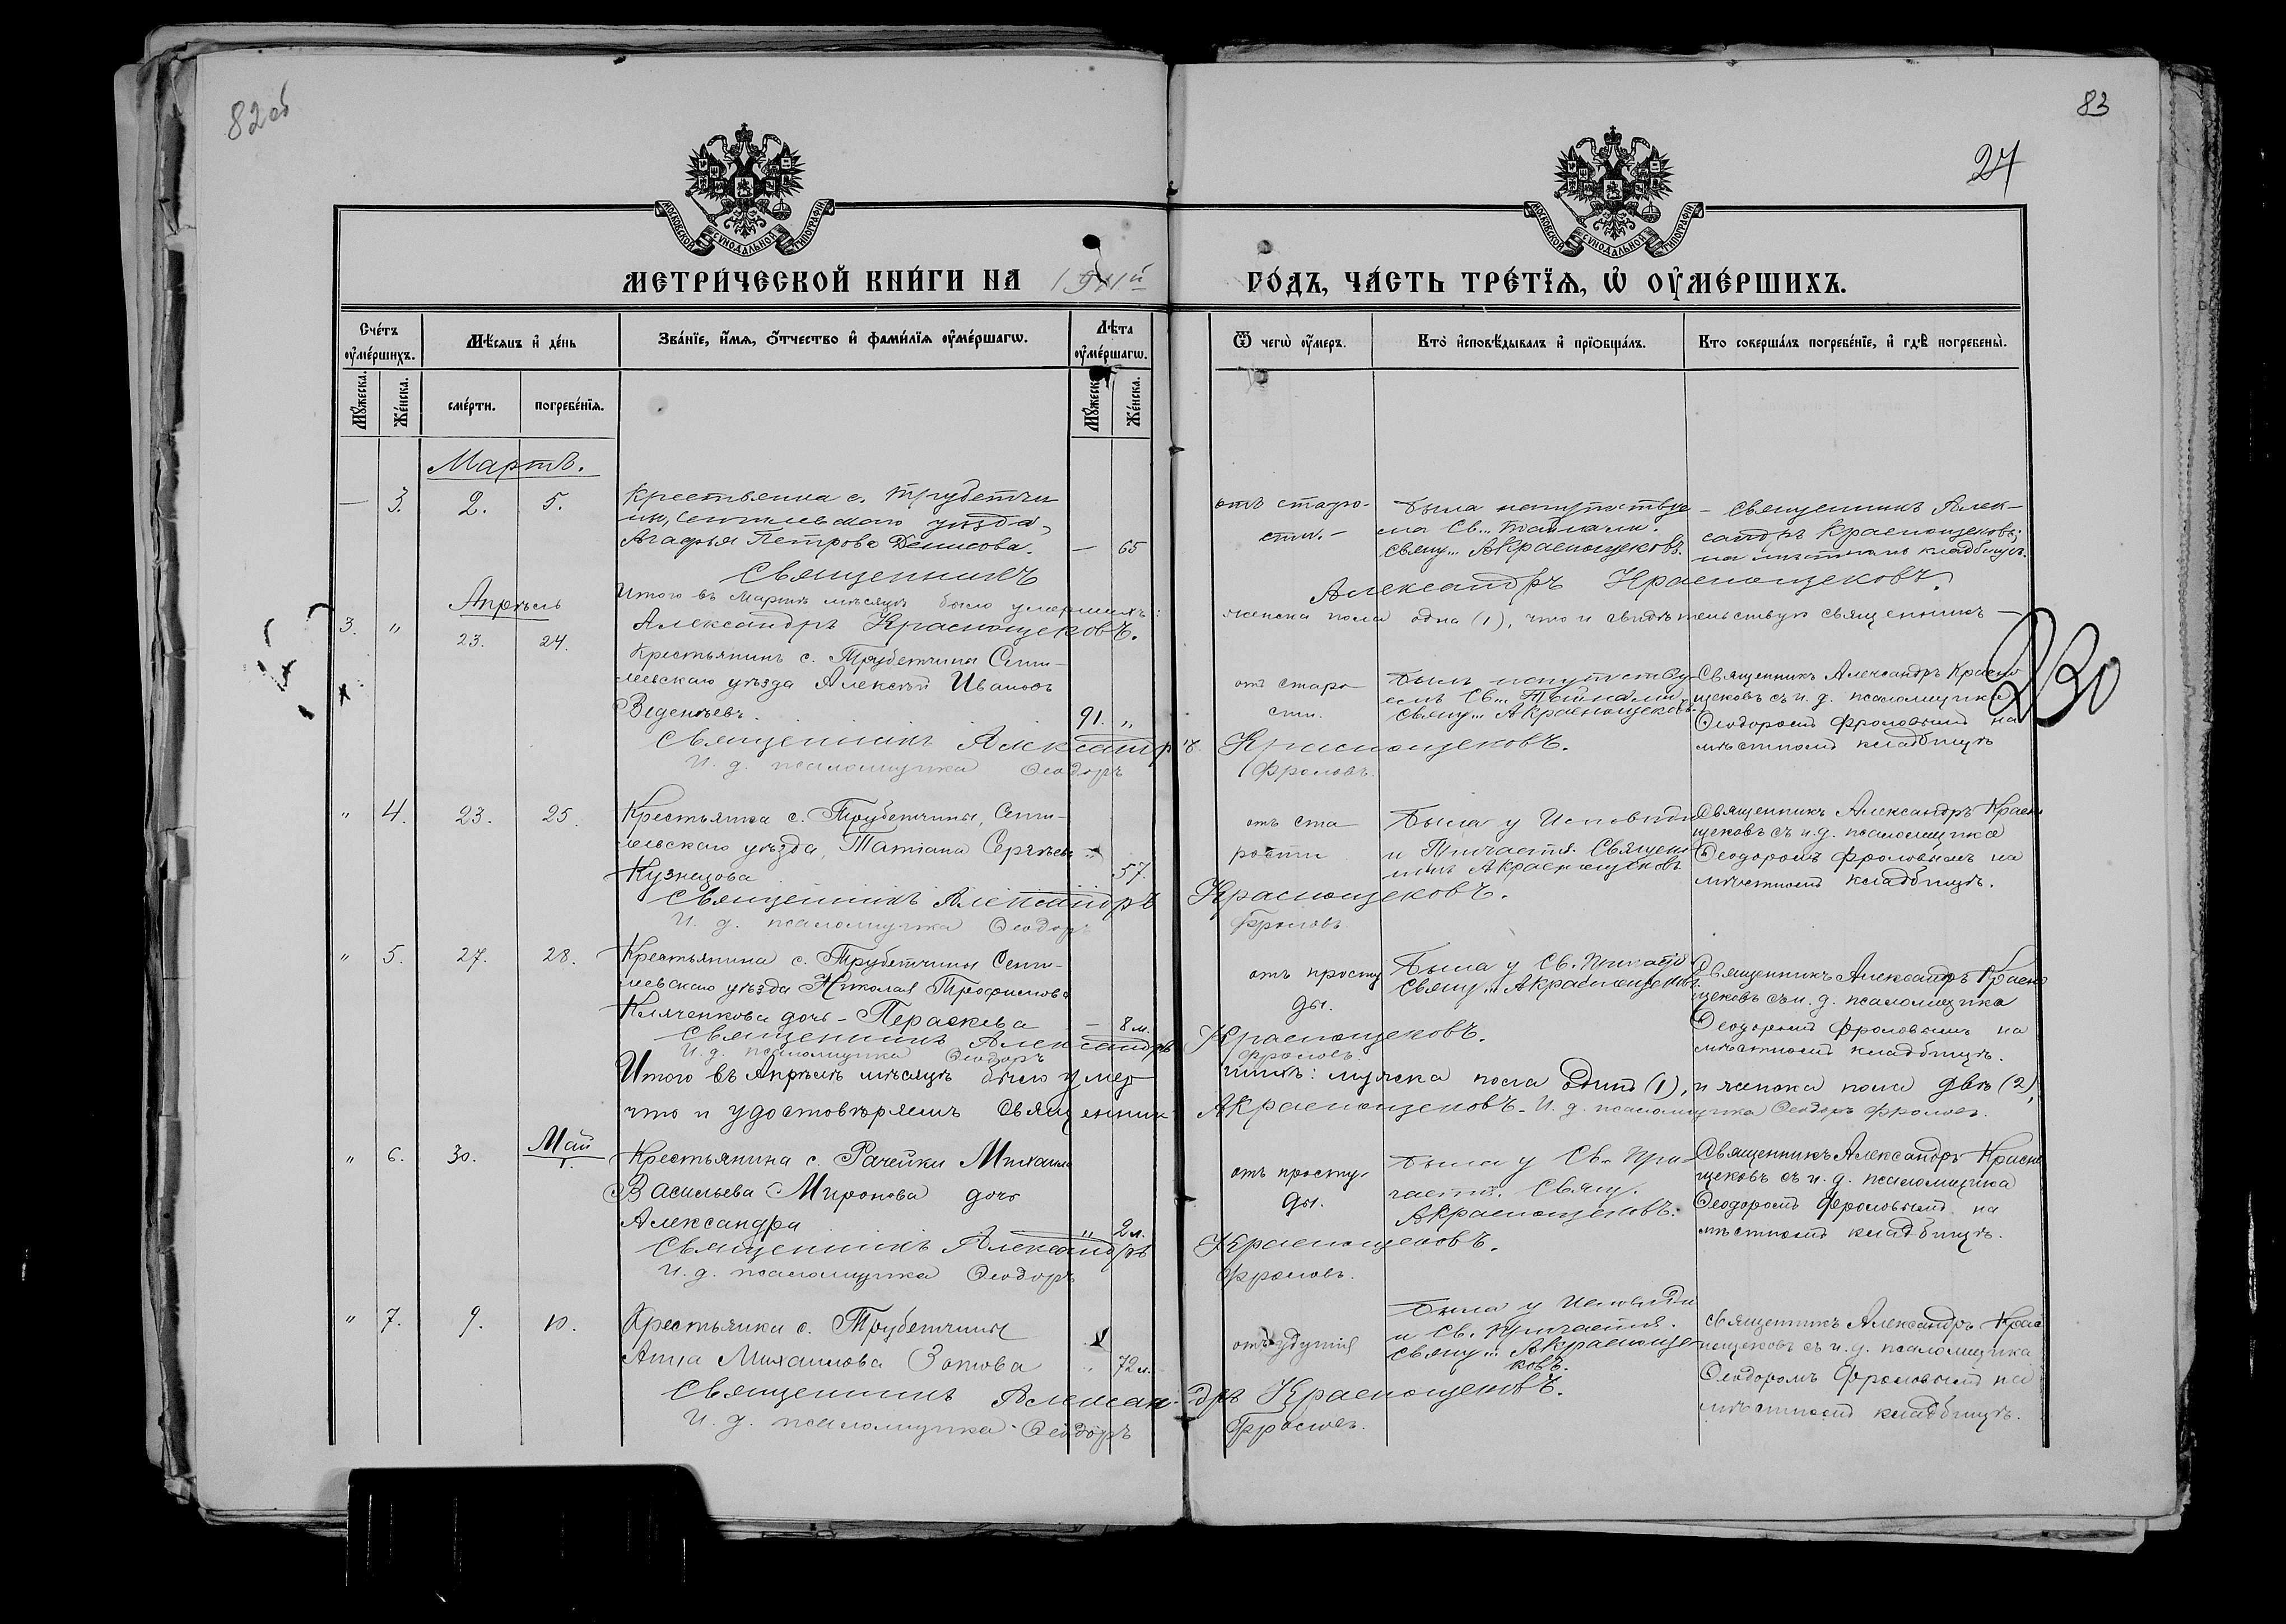 82 об
83
27
МОСКОВСКОЙ СѴНОДАЛЬНОЙ ТИПОГРАФІИ
МОСКОВСКОЙ СѴНОДАЛЬНОЙ ТИПОГРАФІИ
МЕТРИ́ЧЕСКОЙ КНИ́ГИ НА 1911й
ГО́ДЪ, ЧА́СТЬ ТРЕ́ТЇѦ, Ѡ҆ ОУ҆МЕ́РШИХЪ.
Сче́тъ оу҆ме́ршихъ.
Мѣ́сяцъ и҆ де́нь
Зва́нїе, и҆́мѧ, ѻ҆́тчество и҆ фами́лїѧ оу҆ме́ршагѡ.
Лѣ́та оу҆ме́ршагѡ.
Ѿ чегѡ̀ оу҆́меръ.
Кто̀ и҆сповѣ́дывалъ и҆ прїѻбща́лъ.
Кто̀ соверша́лъ погребе́нїе, и҆ гдѣ̀ погребены̀.
Мꙋ́жеска.
Же́нска.
сме́рти.
погребе́нїѧ.
Мꙋ́жеска.
Же́нска.
Мартъ.
— 3. 2. 5. Крестьянка с. Трубетчи-
ны, Сенгилевскаго уѣзда,
Агафья Петрова Денисова. — 65
отъ старо-
сти.—
Была напутствуе-
ма Св. Тайнами.
Свящ... АКраснощековъ.
Священникъ Алек-
сандръ Краснощековъ;
на мѣстномъ кладбищѣ.
Священникъ Александръ Краснощековъ.
Итого въ Мартѣ мѣсяцѣ было умершихъ: женска пола одна (1), что и свидѣтельствую священникъ
Александръ Краснощековъ.
Апрѣль
3. " 23. 24. Крестьянинъ с. Трубетчины Сенги-
левскаго уѣзда Алексѣй Ивановъ
Веденѣевъ. 91. "
отъ старо
сти.
Былъ напутству
емъ Св... Тайнами
свящ... АКраснощековъ.
Священникъ Александръ Красно
щековъ съ и. д. псаломщика
Ѳеодоромъ Фроловымъ на
мѣстномъ кладбищѣ
230
Священникъ Александръ Краснощековъ.
И. д. псаломщика Ѳеодоръ Фроловъ.
" 4. 23. 25. Крестьянка с. Трубетчины, Сенги-
левскаго уѣзда, Татіана Сергѣева "
Кузнецова 57.
отъ ста
рости
Была у Исповѣди
и Причастія. Священ-
никъ АКраснощековъ.
Священникъ Александръ Красно
щековъ съ и. д. псаломщика
Ѳеодоромъ Фроловымъ на
мѣстномъ кладбищѣ.
Священникъ Александръ Краснощековъ.
И. д. псаломщика Ѳеодоръ Фроловъ.
" 5. 27. 28. Крестьянина с. Трубетчины Сенги-
левскаго уѣзда Николая Трофимова
Кляченкова дочь - Параскева — 8 м.
отъ просту
ды.
Была у Св. Причастія
Свящ... АКраснощековъ.
Священникъ Александръ Красно
щековъ съ и. д. псаломщика
Ѳеодоромъ Фроловымъ на
мѣстномъ кладбищѣ.
Священникъ Александръ Краснощековъ.
И. д. псаломщика Ѳеодоръ Фроловъ.
Итого въ Апрѣлѣ мѣсяцѣ было умершихъ: мужска пола одинъ (1), и женска пола двѣ (2),
что и удостовѣряемъ Священникъ АКраснощековъ. И. д. псаломщика Ѳеодоръ Фроловъ.
Май
" 6. 30. 1. Крестьянина с. Рачейки Михаила
Васильева Миронова дочь
Александра " 2 м.
отъ просту-
ды.
Была у Св. При-
частія. Свящ.
АКраснощековъ.
Священникъ Александръ Красно
щековъ съ и. д. псаломщика
Ѳеодоромъ Фроловымъ на
мѣстномъ кладбищѣ.
Священникъ Александръ Краснощековъ.
И. д. псаломщика Ѳеодоръ Фроловъ.
" 7. 9. 10. Крестьянки с. Трубетчины
Анна Михаилова Зотова " 72 л.
Была у Исповѣди
и Св. Причастія.
Свящ... АКраснощек
ковъ.
Священникъ Александръ Крас
нощековъ съ и. д. псаломщика
Ѳеодоромъ Фроловымъ на
мѣстномъ кладбищѣ.
Священникъ Александръ Краснощековъ.
И. д. псаломщика Ѳеодоръ Фроловъ.